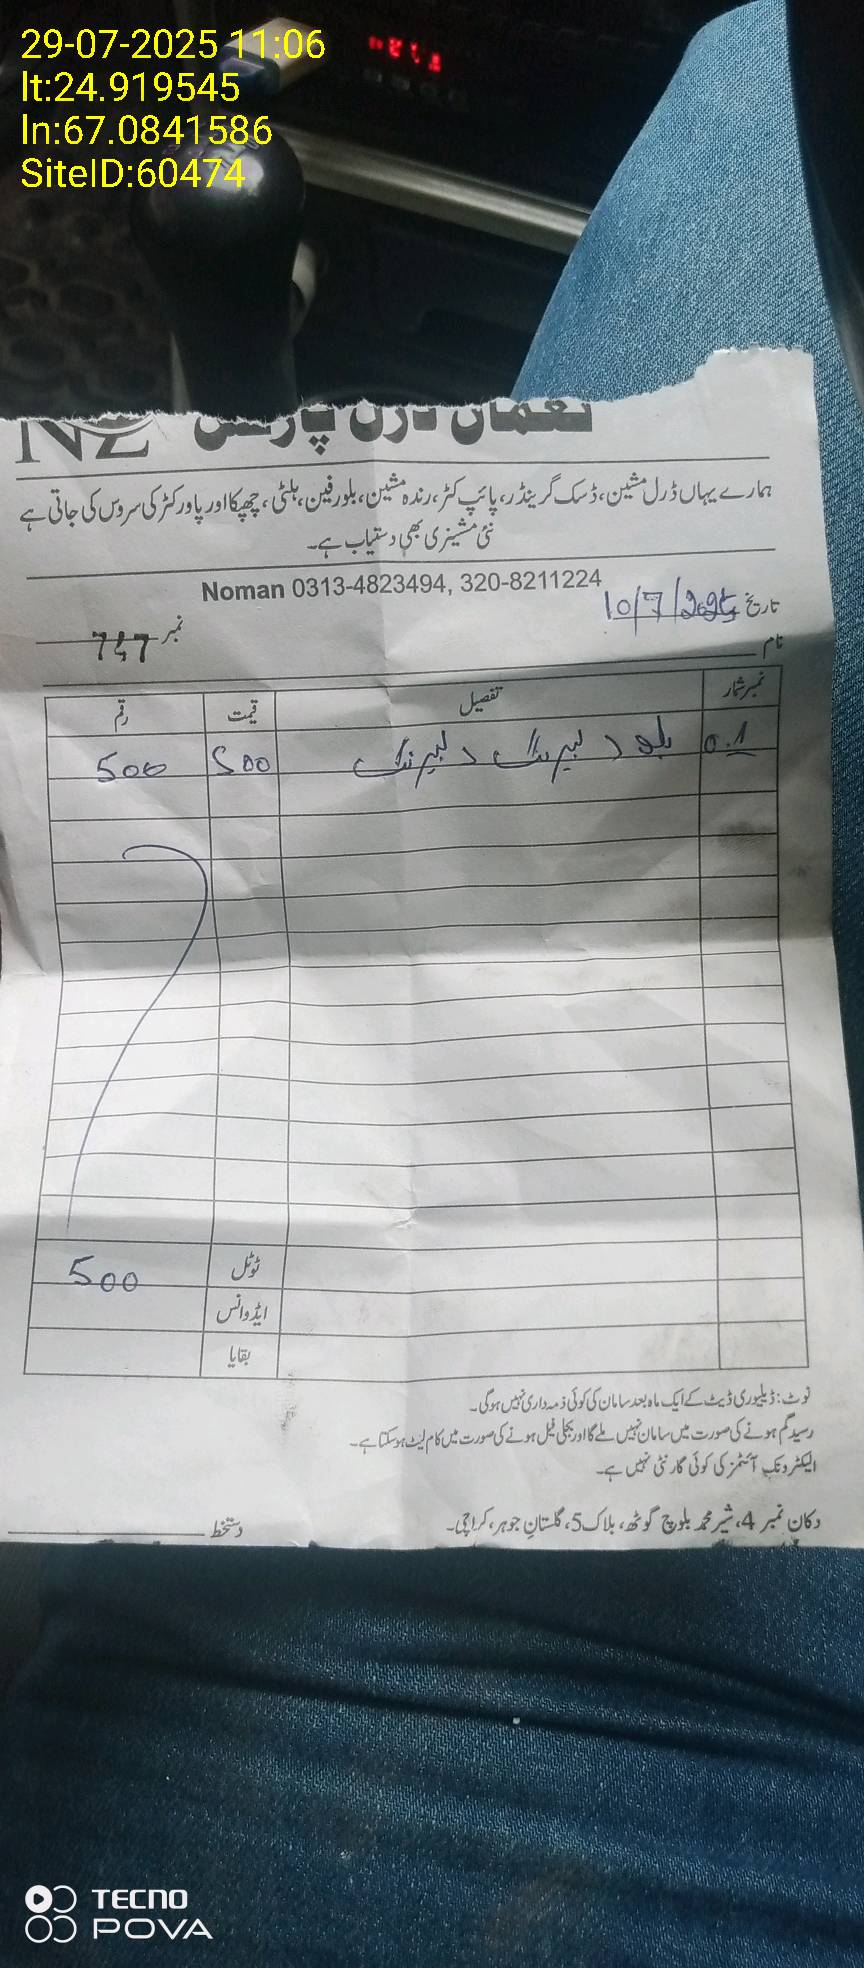 29-07-2025 11:06
lt:24.919545
ln:67.0841586
SiteID:60474
NZ نعمان ڈرل پارٹس
ہمارے یہاں ڈرل مشین، ڈسک گرینڈر، پائپ کٹر، رندہ مشین، بلور فین، ہلٹی، چھپکا اور پاور کٹر کی سروس کی جاتی ہے
نئی مشینری بھی دستیاب ہے۔
Noman 0313-4823494, 320-8211224
تاریخ 10/7/2025
نمبر 747
نام
نمبر شمار تفصیل قیمت رقم
0.1 بلور 500 500
ٹوٹل 500
ایڈوانس
بقایا
نوٹ: ڈیلیوری ڈیٹ کے ایک ماہ بعد سامان کی کوئی ذمہ داری نہیں ہوگی۔
رسید گم ہونے کی صورت میں سامان نہیں ملے گا اور بجلی فیل ہونے کی صورت میں کام لیٹ ہوسکتا ہے۔
الیکٹرونک آئٹمز کی کوئی گارنٹی نہیں ہے۔
دکان نمبر 4، شیر محمد بلوچ گوٹھ، بلاک 5، گلستان جوہر، کراچی۔
دستخط
TECNO
POVA